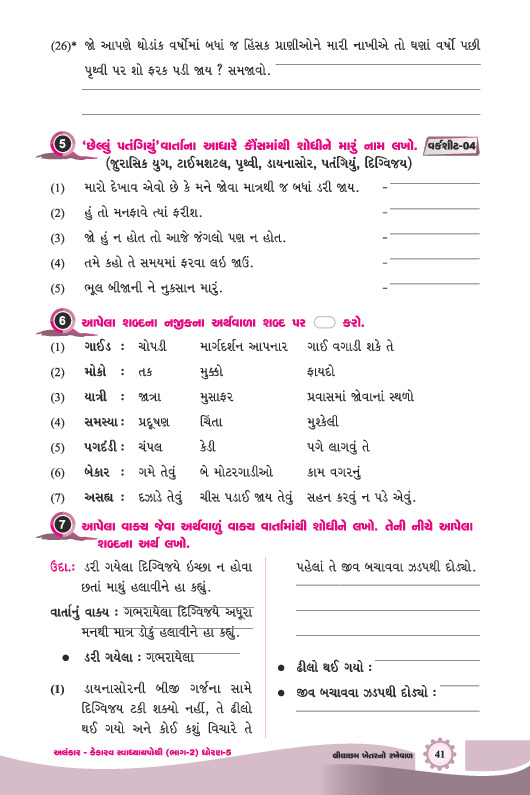 (26)* જો આપણે થોડાંક વર્ષોમાં બધાં જ હિંસક પ્રાણીઓને મારી નાખીએ તો ઘણાં વર્ષો પછી
પૃથ્વી પર શો ફરક પડી જાય ? સમજાવો.
5 ‘છેલ્લું પતંગિયું’ વાર્તાના આધારે કૌંસમાંથી શોધીને મારું નામ લખો. વર્કશીટ-04
(જુરાસિક યુગ, ટાઈમશટલ, પૃથ્વી, ડાયનાસોર, પતંગિયું, દિગ્વિજય)
(1) મારો દેખાવ એવો છે કે મને જોવા માત્રથી જ બધાં ડરી જાય. -
(2) હું તો મનફાવે ત્યાં ફરીશ. -
(3) જો હું ન હોત તો આજે જંગલો પણ ન હોત. -
(4) તમે કહો તે સમયમાં ફરવા લઇ જાઉં. -
(5) ભૂલ બીજાની ને નુકસાન મારું. -
6 આપેલા શબ્દના નજીકના અર્થવાળા શબ્દ પર કરો.
(1) ગાઈડ : ચોપડી માર્ગદર્શન આપનાર ગાઈ વગાડી શકે તે
(2) મોકો : તક મુક્કો ફાયદો
(3) યાત્રી : જાત્રા મુસાફર પ્રવાસમાં જોવાનાં સ્થળો
(4) સમસ્યા : પ્રદૂષણ ચિંતા મુશ્કેલી
(5) પગદંડી : ચંપલ કેડી પગે લાગવું તે
(6) બેકાર : ગમે તેવું બે મોટરગાડીઓ કામ વગરનું
(7) અસહ્ય : દઝાડે તેવું ચીસ પડાઈ જાય તેવું સહન કરવું ન પડે એવું.
7 આપેલા વાક્ય જેવા અર્થવાળું વાક્ય વાર્તામાંથી શોધીને લખો. તેની નીચે આપેલા
શબ્દના અર્થ લખો.
ઉદા.: ડરી ગયેલા દિગ્વિજયે ઇચ્છા ન હોવા
છતાં માથું હલાવીને હા કહ્યું.
વાર્તાનું વાક્ય : ગભરાયેલા દિગ્વિજયે અધૂરા
મનથી માત્ર ડોકું હલાવીને હા કહ્યું.
● ડરી ગયેલા : ગભરાયેલા
(1) ડાયનાસોરની બીજી ગર્જના સામે
દિગ્વિજય ટકી શક્યો નહીં, તે ઢીલો
થઈ ગયો અને કોઈ કશું વિચારે તે
પહેલાં તે જીવ બચાવવા ઝડપથી દોડ્યો.
● ઢીલો થઈ ગયો :
● જીવ બચાવવા ઝડપથી દોડ્યો :
અલંકાર - કેકારવ સ્વાધ્યાયપોથી (ભાગ-2) ધોરણ-5
લીલાછમ ખેતરનો રખેવાળ 41